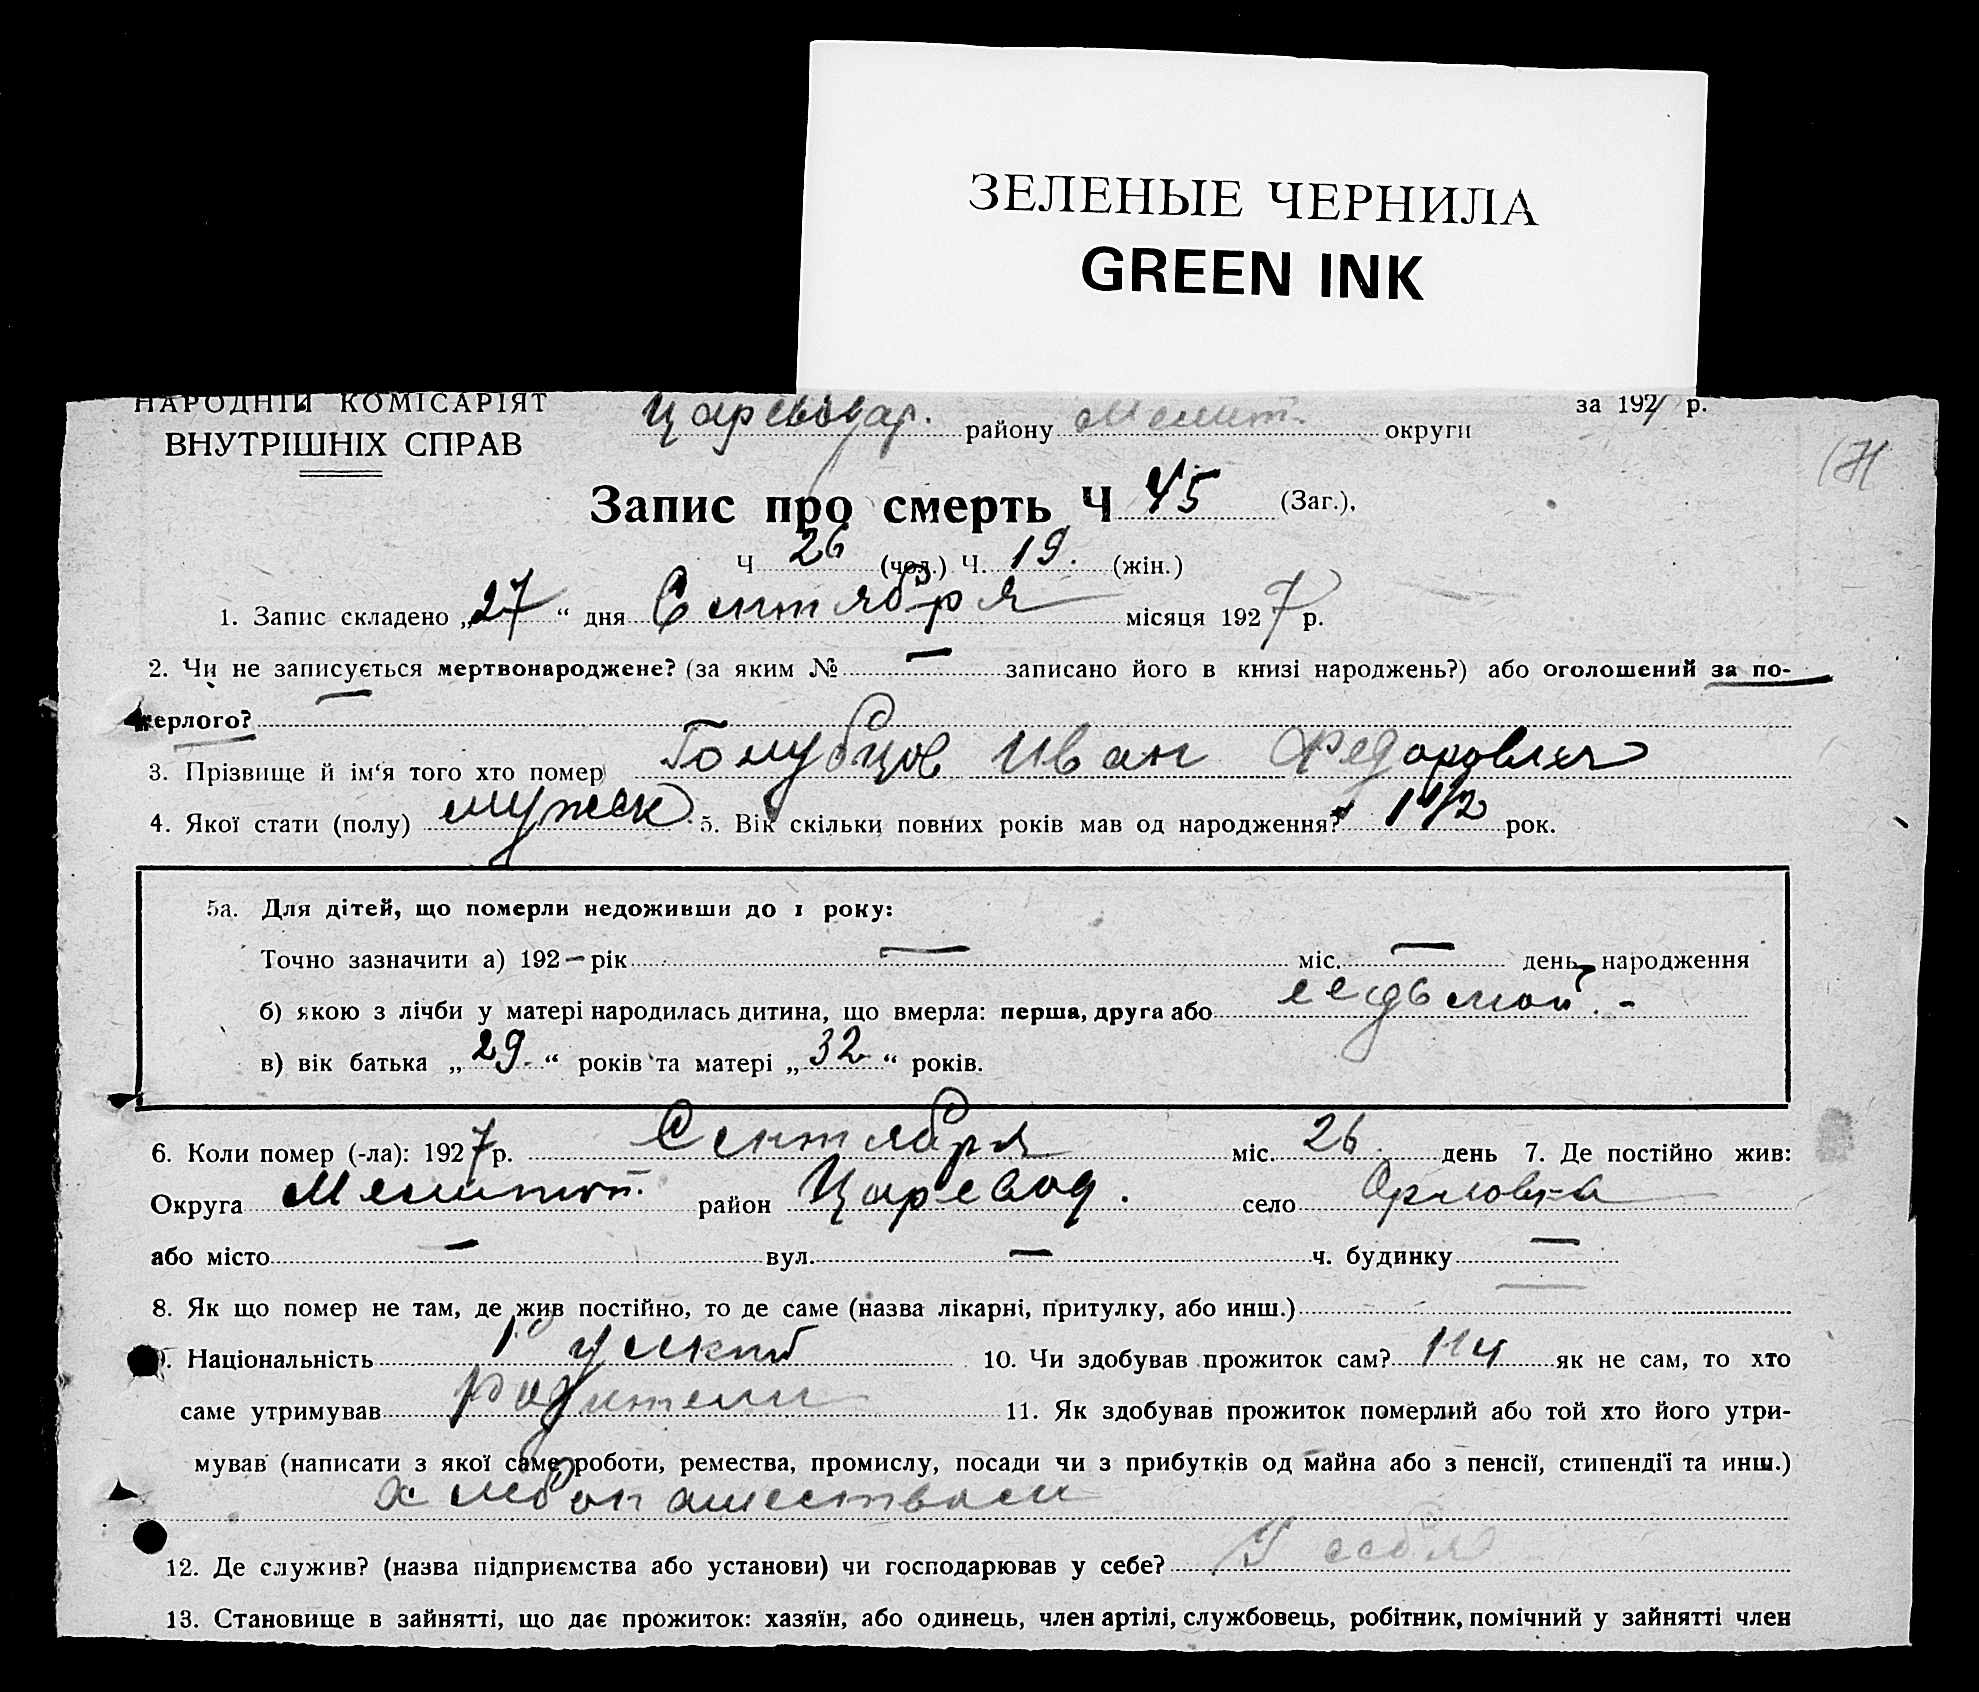 ЗЕЛЕНЫЕ ЧЕРНИЛА
GREEN INK
НАРОДНІЙ КОМІСАРІЯТ
ВНУТРІШНІХ СПРАВ
Царевод. району Мелит. округи
за 1927 р.
Запис про смерть Ч 45 (Заг.).
Ч 26 (чол.) Ч. 19. (жін.)
1. Запис складено „27“ дня Сентября місяця 1927 р.
2. Чи не записується мертвонароджене? (за яким № — записано його в книзі народжень?) або оголошений за по-
мерлого? —
3. Прізвище й ім‘я того хто помер Голубцов Иван Федорович
4. Якої стати (полу) мужск. 5. Вік скільки повних років мав од народження? 1 1/2 рок.
5а. Для дітей, що померли недоживши до 1 року:
Точно зазначити а) 192— рік — міс. — день народження
б) якою з лічби у матері народилась дитина, що вмерла: перша, друга або седьмой. -
в) вік батька „29.“ років та матері „32“ років.
6. Коли помер (-ла): 1927 р. Сентября міс. 26. день 7. Де постійно жив:
Округа Мелитоп. район Царевод. село Орловка
або місто — вул. — ч. будинку —
8. Як що помер не там, де жив постійно, то де саме (назва лікарні, притулку, або инш.) —
9. Національність Руский 10. Чи здобував прожиток сам? як не сам, то хто
саме утримував Родители 11. Як здобував прожиток померлий або той хто його утри-
мував (написати з якої саме роботи, ремества, промислу, посади чи з прибутків од майна або з пенсії, стипендії та инш.)
хлебопашеством
12. Де служив? (назва підприємства або установи) чи господарював у себе? У себя
13. Становище в зайнятті, що дає прожиток: хазяїн, або одинець, член артілі, службовець, робітник, помічний у зайнятті член